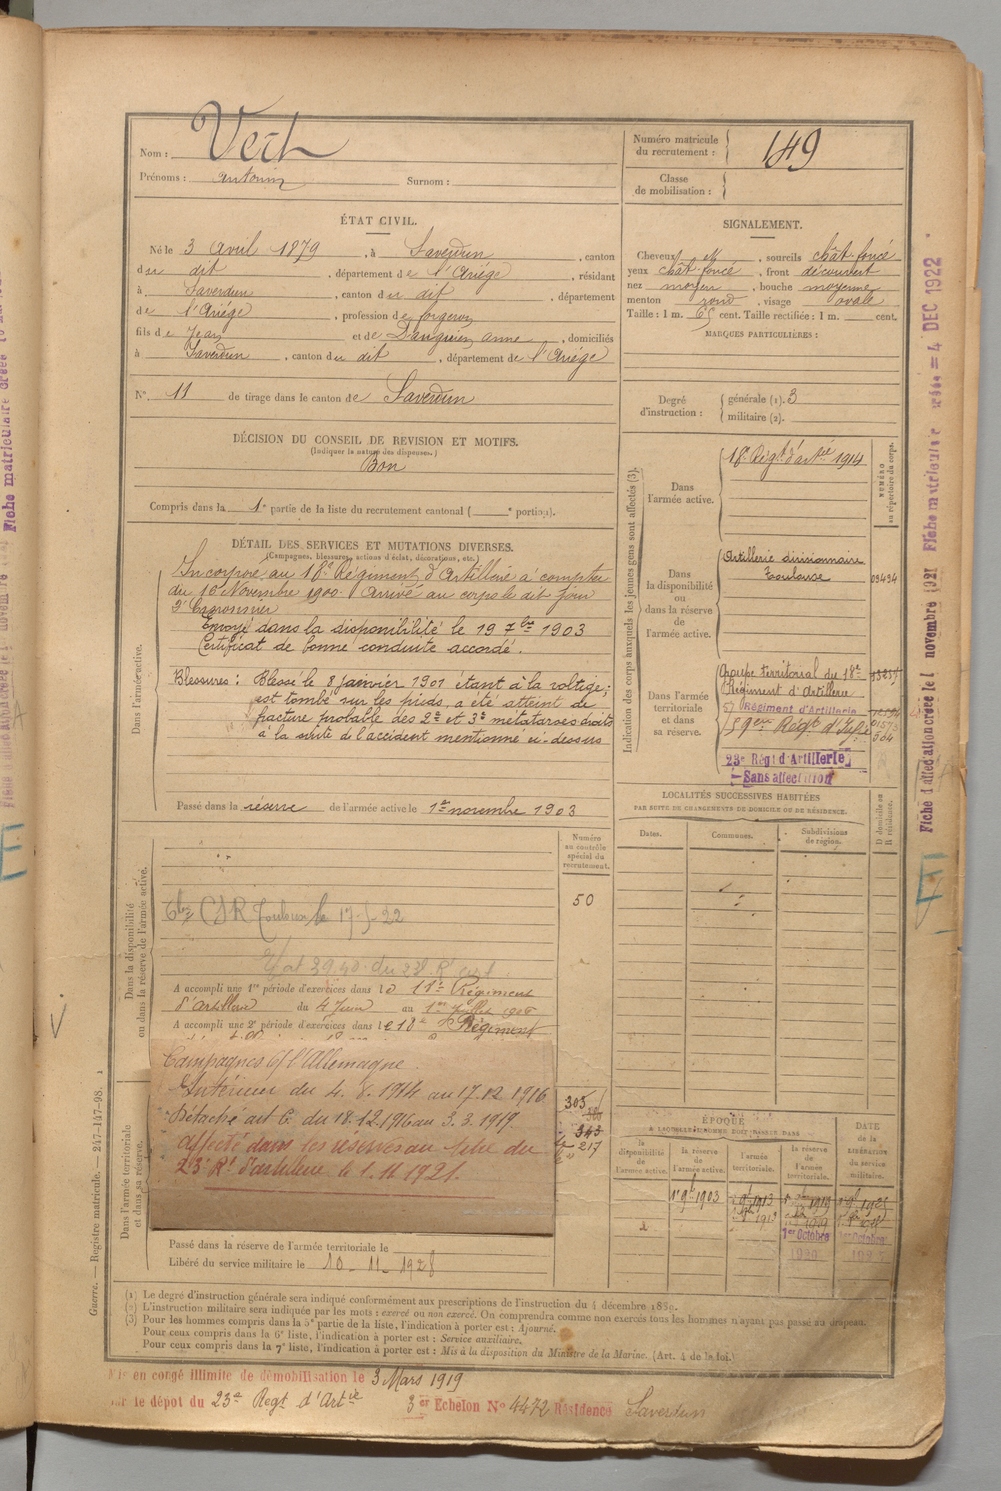 Nom : Vert
Prénoms : Antonin Surnom :
Numéro matricule
du recrutement : 149
Classe
de mobilisation :
ÉTAT CIVIL.
Né le 3 Avril 1879, à Saverdun, canton
du dit, département de l'Ariège, résidant
à Saverdun, canton du dit, département
de l'Ariège, profession de forgeron
fils de Jean et de Dauguien anne, domiciliés
à Saverdun, canton du dit, département de l'Ariège
N° 11 de tirage dans le canton de Saverdun
SIGNALEMENT.
Cheveux et, sourcils chât foncé
yeux chât foncé, front découvert
nez moyen, bouche moyenne
menton rond, visage ovale
Taille : 1 m. 65 cent. Taille rectifiée : 1 m. cent.
MARQUES PARTICULIÈRES :
Degré
d'instruction :
générale (1). 3
militaire (2).
DÉCISION DU CONSEIL DE REVISION ET MOTIFS.
(Indiquer la nature des dispenses.)
Bon
Compris dans la 1e partie de la liste du recrutement cantonal ( e portion).
DÉTAIL DES SERVICES ET MUTATIONS DIVERSES.
(Campagnes, blessures, actions d'éclat, décorations, etc.)
Dans l'armée active.
Incorporé au 18e Régiment d'Artillerie à compter
du 16 Novembre 1900. Arrivé au corps le dit jour
2e Canonnier
Envoyé dans la disponibilité le 19 7bre 1903
Certificat de bonne conduite accordé.
Blessures : Blessé le 8 janvier 1901 étant à la voltige;
est tombé sur les pieds, a été atteint de
fracture probable des 2e et 3e métatarses droits
à la suite de l'accident mentionné ci-dessus
Passé dans la réserve de l'armée active le 1er novembre 1903
Indication des corps auxquels les jeunes gens sont affectés (3).
NUMÉRO
au répertoire du corps.
Dans
l'armée active.
18e Régt d'artie 1914
Dans
la disponibilité
ou
dans la réserve
de
l'armée active.
Artillerie divisionnaire
Toulouse
Dans l'armée
territoriale
et dans
sa réserve.
Groupe territorial du 18e
Régiment d'Artillerie
Régiment d'Artillerie
59eme Régt d'Infie
23e Régt d'Artillerie
Sans affectation
LOCALITÉS SUCCESSIVES HABITÉES
PAR SUITE DE CHANGEMENTS DE DOMICILE OU DE RÉSIDENCE.
Dates.
Communes.
Subdivisions
de région.
D domicile ou
R résidence.
Dans la disponibilité
ou dans la réserve de l'armée active.
Numéro
au contrôle
spécial du
recrutement.
50
CSR Toulouse le 17-5-22
A accompli une 1re période d'exercices dans le 18e Régiment
d'artillerie du 4 Juin au 1er Juillet 1906
A accompli une 2e période d'exercices dans le 18e Régiment
Campagnes c/ l'Allemagne.
Intérieur du 4.8.1914 au 17.12.1916
Détaché art C. du 18.12.1916 au 3.3.1919
affecté dans les réserves au titre du
23e Rt d'artillerie le 1.11.1921.
303
343
217
Dans l'armée territoriale
et dans sa réserve.
Passé dans la réserve de l'armée territoriale le
Libéré du service militaire le 10-11-1928
ÉPOQUE
À LAQUELLE L'HOMME DOIT PASSER DANS
la
disponibilité
de
l'armée active.
la réserve
de
l'armée active.
l'armée
territoriale.
la réserve
de
l'armée
territoriale.
DATE
de la
LIBÉRATION
du service
militaire.
1er 9bre 1903
1er Octobre
1er Octobre
(1) Le degré d'instruction générale sera indiqué conformément aux prescriptions de l'instruction du 4 décembre 1889.
(2) L'instruction militaire sera indiquée par les mots : exercé ou non exercé. On comprendra comme non exercés tous les hommes n'ayant pas passé au drapeau.
(3) Pour les hommes compris dans la 5e partie de la liste, l'indication à porter est : Ajourné.
Pour ceux compris dans la 6e liste, l'indication à porter est : Service auxiliaire.
Pour ceux compris dans la 7e liste, l'indication à porter est : Mis à la disposition du Ministre de la Marine. (Art. 4 de la loi.)
en congé illimité de démobilisation le 3 Mars 1919
le dépôt du 23e Régt d'Artie 3er Echelon N° 4472 Résidence Saverdun
Guerre. — Registre matricule. — 247-147-98.
Fiche d'affectation créée le 1 novembre 1921 Fiche matricule créée = 4 DEC 1922